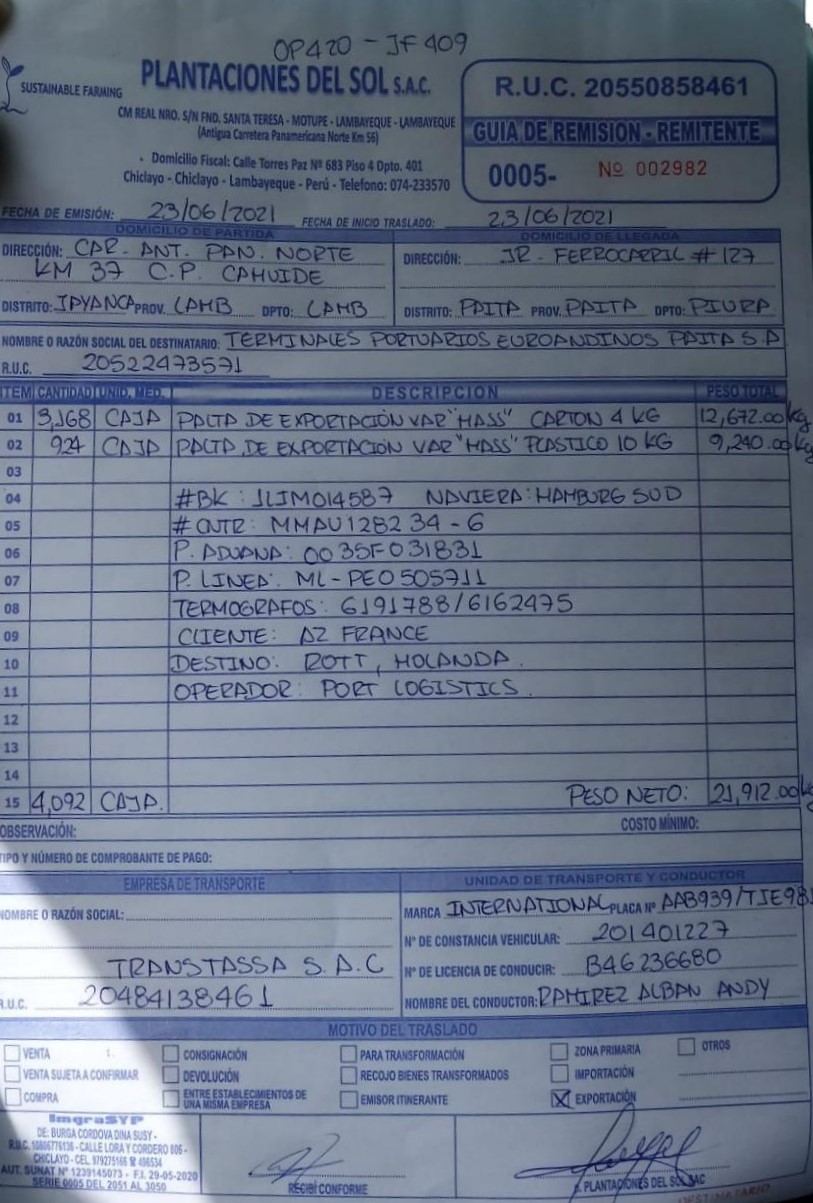 OP420 - JF409
SUSTAINABLE FARMING
PLANTACIONES DEL SOL S.A.C.
CM REAL NRO. S/N FND. SANTA TERESA - MOTUPE - LAMBAYEQUE - LAMBAYEQUE
(Antigua Carretera Panamericana Norte Km 56)
• Domicilio Fiscal: Calle Torres Paz Nº 683 Piso 4 Dpto. 401
Chiclayo - Chiclayo - Lambayeque - Perú - Telefono: 074-233570
R.U.C. 20550858461
GUIA DE REMISION - REMITENTE
0005- Nº 002982
FECHA DE EMISIÓN: 23/06/2021 FECHA DE INICIO TRASLADO: 23/06/2021
DOMICILIO DE PARTIDA
DIRECCIÓN: CAR. ANT. PAN. NORTE
KM 37 C.P. CAHUIDE
DISTRITO: JAYANCA PROV. LAMB DPTO: LAMB
DOMICILIO DE LLEGADA
DIRECCIÓN: JR. FERROCARRIL # 127
DISTRITO: PAITA PROV. PAITA DPTO: PIURA
NOMBRE O RAZÓN SOCIAL DEL DESTINATARIO: TERMINALES PORTUARIOS EUROANDINOS PAITA S.A
R.U.C. 20522473571
ITEM CANTIDAD UNID. MED. DESCRIPCION PESO TOTAL
01 3,168 CAJA PALTA DE EXPORTACIÓN VAR "HASS" CARTON 4 KG 12,672.00 kg
02 924 CAJA PALTA DE EXPORTACIÓN VAR "HASS" PLASTICO 10 KG 9,240.00 kg
03
04 #BK: 1LIM014587 NAVIERA: HAMBURG SUD
05 # CNTR: MMAU128234-6
06 P. ADUANA: 0035F031831
07 P. LINEA: ML-PE0505711
08 TERMOGRAFOS: 6191788/6162475
09 CLIENTE: AZ FRANCE
10 DESTINO: ROTT, HOLANDA.
11 OPERADOR: PORT LOGISTICS.
12
13
14
15 4,092 CAJA. PESO NETO: 21,912.00 kg
OBSERVACIÓN: COSTO MÍNIMO:
TIPO Y NÚMERO DE COMPROBANTE DE PAGO:
EMPRESA DE TRANSPORTE
NOMBRE O RAZÓN SOCIAL:
TRANSTASSA S.A.C
R.U.C. 20484138461
UNIDAD DE TRANSPORTE Y CONDUCTOR
MARCA INTERNATIONAL PLACA Nº AAB939/TJE98
Nº DE CONSTANCIA VEHICULAR: 201401227
Nº DE LICENCIA DE CONDUCIR: B46236680
NOMBRE DEL CONDUCTOR: RAMIREZ ALBAN ANDY
MOTIVO DEL TRASLADO
VENTA CONSIGNACIÓN PARA TRANSFORMACIÓN ZONA PRIMARIA OTROS
VENTA SUJETA A CONFIRMAR DEVOLUCIÓN RECOJO BIENES TRANSFORMADOS IMPORTACIÓN
COMPRA ENTRE ESTABLECIMIENTOS DE UNA MISMA EMPRESA EMISOR ITINERANTE X EXPORTACIÓN
ImgraSYP
DE: BURGA CORDOVA DINA SUSY -
R.U.C. 10806776136 - CALLE LORA Y CORDERO 806 -
CHICLAYO - CEL. 979275166
AUT. SUNAT Nº 1239145073 - F.I. 29-05-2020
SERIE 0005 DEL 2051 AL 3050
RECIBÍ CONFORME
p. PLANTACIONES DEL SOL SAC
DESTINATARIO